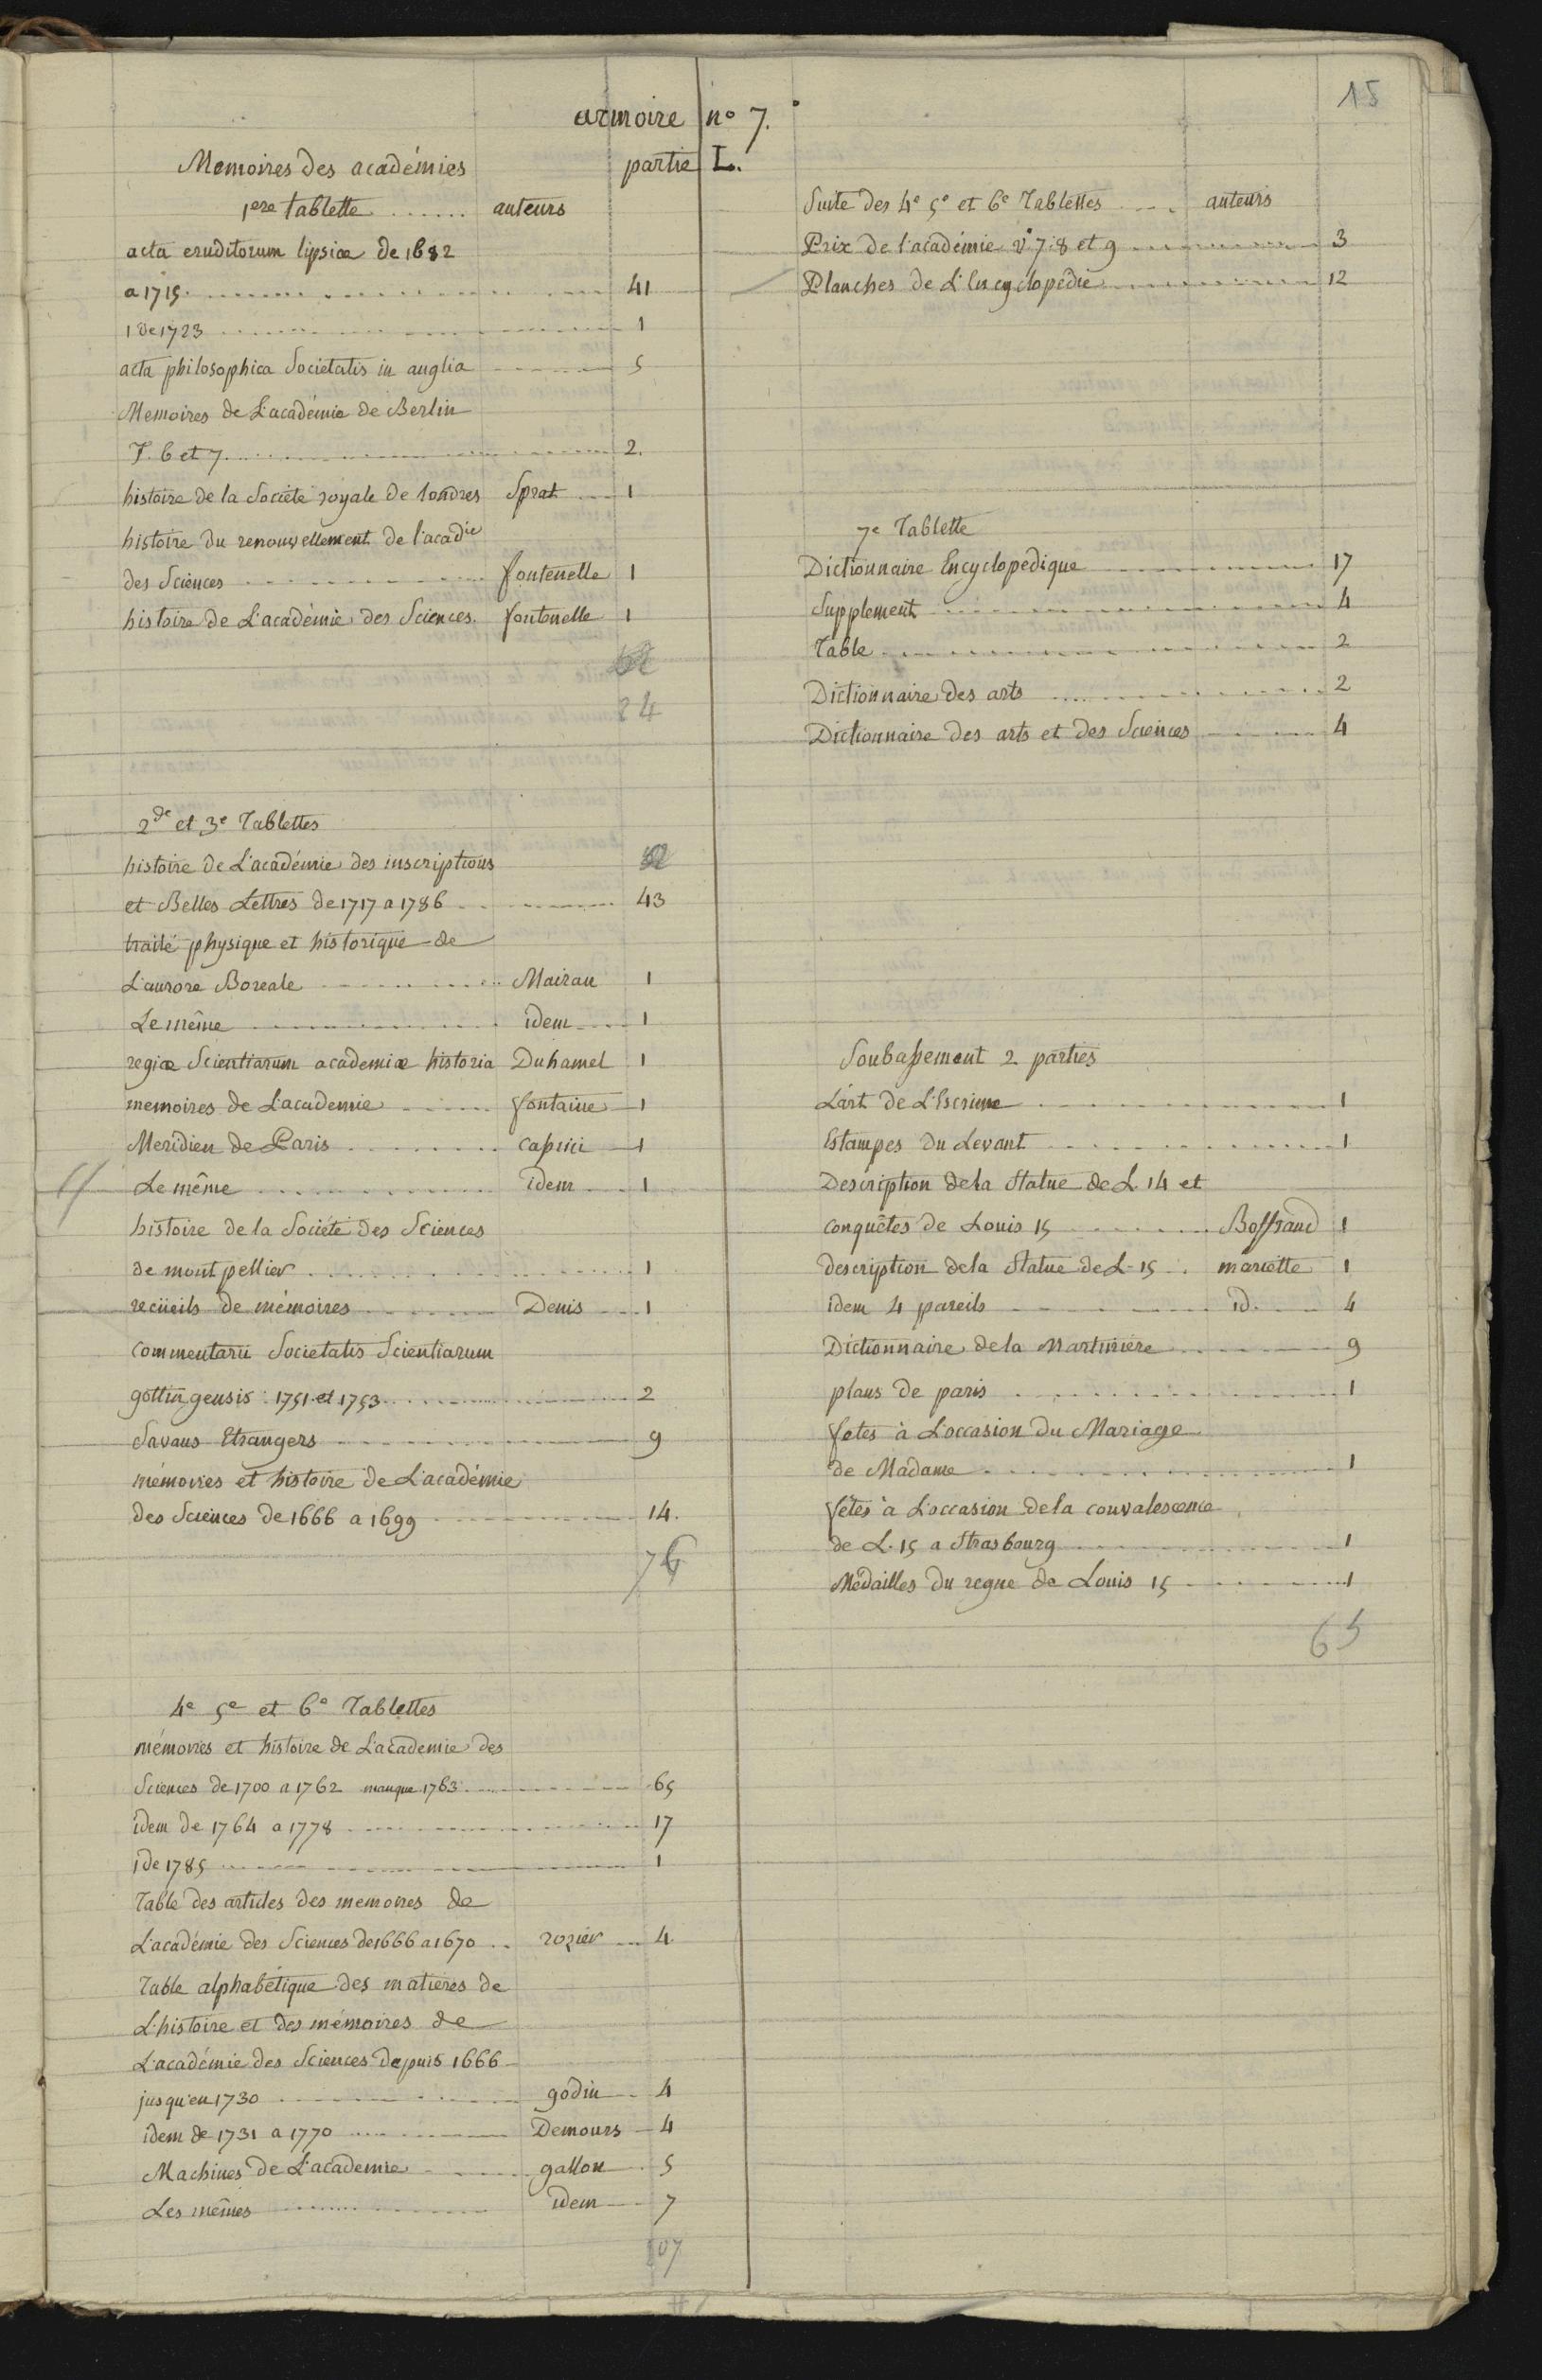 15
armoire no 7.
partie L.
Memoires des académies
1ere tablette ...... auteurs
acta eruditorum lipsiæ de 1682
a 1715 ...... 41
1 de 1723 ...... 1
acta philosophica Societatis in anglia ...... 5
Memoires de L'académie de Berlin
T. 6 et 7 ...... 2.
histoire de la Société royale de londres Sprat .... 1
histoire du renouvellement de l'acadie
des Sciences ...... fontenelle 1
histoire de L'académie des Sciences. fontenelle 1
84
2de et 3e Tablettes
histoire de L'académie des inscriptions
et Belles Lettres de 1717 a 1786 ...... 43
traité physique et historique de
L'aurore Boreale ...... Mairan 1
Le même ...... idem .... 1
regiæ Scientiarum academiæ historia Duhamel 1
memoires de L'academie ...... fontaine 1
Meridien de Paris ...... cassini 1
Le même ...... idem .. 1
histoire de la Société des Sciences
de montpellier ...... 1
recüeils de mémoires ...... Denis ... 1
commentarii Societatis Scientiarum
gottingensis 1751 et 1753 ...... 2
Savans Etrangers ...... 9
mémoires et histoire de L'académie
des Sciences de 1666 a 1699 ...... 14.
76
4e 5e et 6e Tablettes
mémoires et histoire de L'academie des
Sciences de 1700 a 1762 manque 1763 ...... 65
idem de 1764 a 1778 ...... 17
1 de 1785 ...... 1
Table des articles des memoires de
L'académie des Sciences de 1666 a 1670 .. rozier ... 4
Table alphabétique des matieres de
L'histoire et des mémoires de
L'académie des Sciences depuis 1666
jusqu'en 1730 ...... godin .. 4
idem de 1731 a 1770 ...... Demours 4
Machines de L'academie ...... gallon . 5
Les mêmes ...... idem ... 7
107
Suite des 4e 5e et 6e Tablettes .... auteurs
Prix de l'académie vo 7. 8 et 9 ...... 3
Planches de L'Encyclopédie ...... 12
7e Tablette
Dictionnaire Encyclopedique ...... 17
Supplement ...... 4
Table ...... 2
Dictionnaire des arts ...... 2
Dictionnaire des arts et des Sciences ...... 4
Soubassement 2 parties
L'art de L'Escrime ...... 1
Estampes du Levant ...... 1
Description de la Statue de L. 14 et
conquêtes de Louis 15 ...... Boffrand 1
description de la Statue de L. 15 .. mariette 1
idem 4 pareils ...... id. ... 4
Dictionnaire de la Martiniere ...... 9
plans de paris ...... 1
fetes à L'occasion du Mariage
de Madame ...... 1
fêtes à L'occasion de la convalescence
de L. 15 a Strasbourg ...... 1
Médailles du regne de Louis 15 ...... 1
65